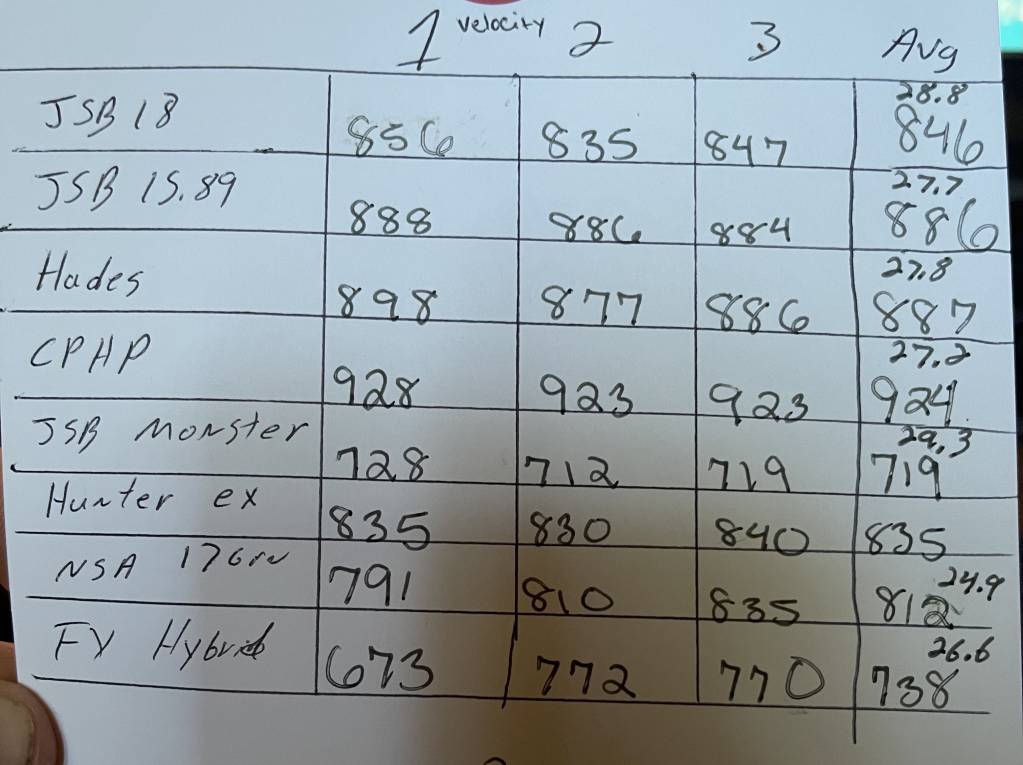 1 velocity 2 3 Avg
JSB 18 856 835 847 28.8 846
JSB 15.89 888 886 884 27.7 886
Hades 898 877 886 27.8 887
CPHP 928 923 923 27.2 924
JSB Monster 728 712 719 29.3 719
Hunter ex 835 830 840 835
NSA 17Grn 791 810 835 24.9 812
FX Hybrid 673 772 770 26.6 738